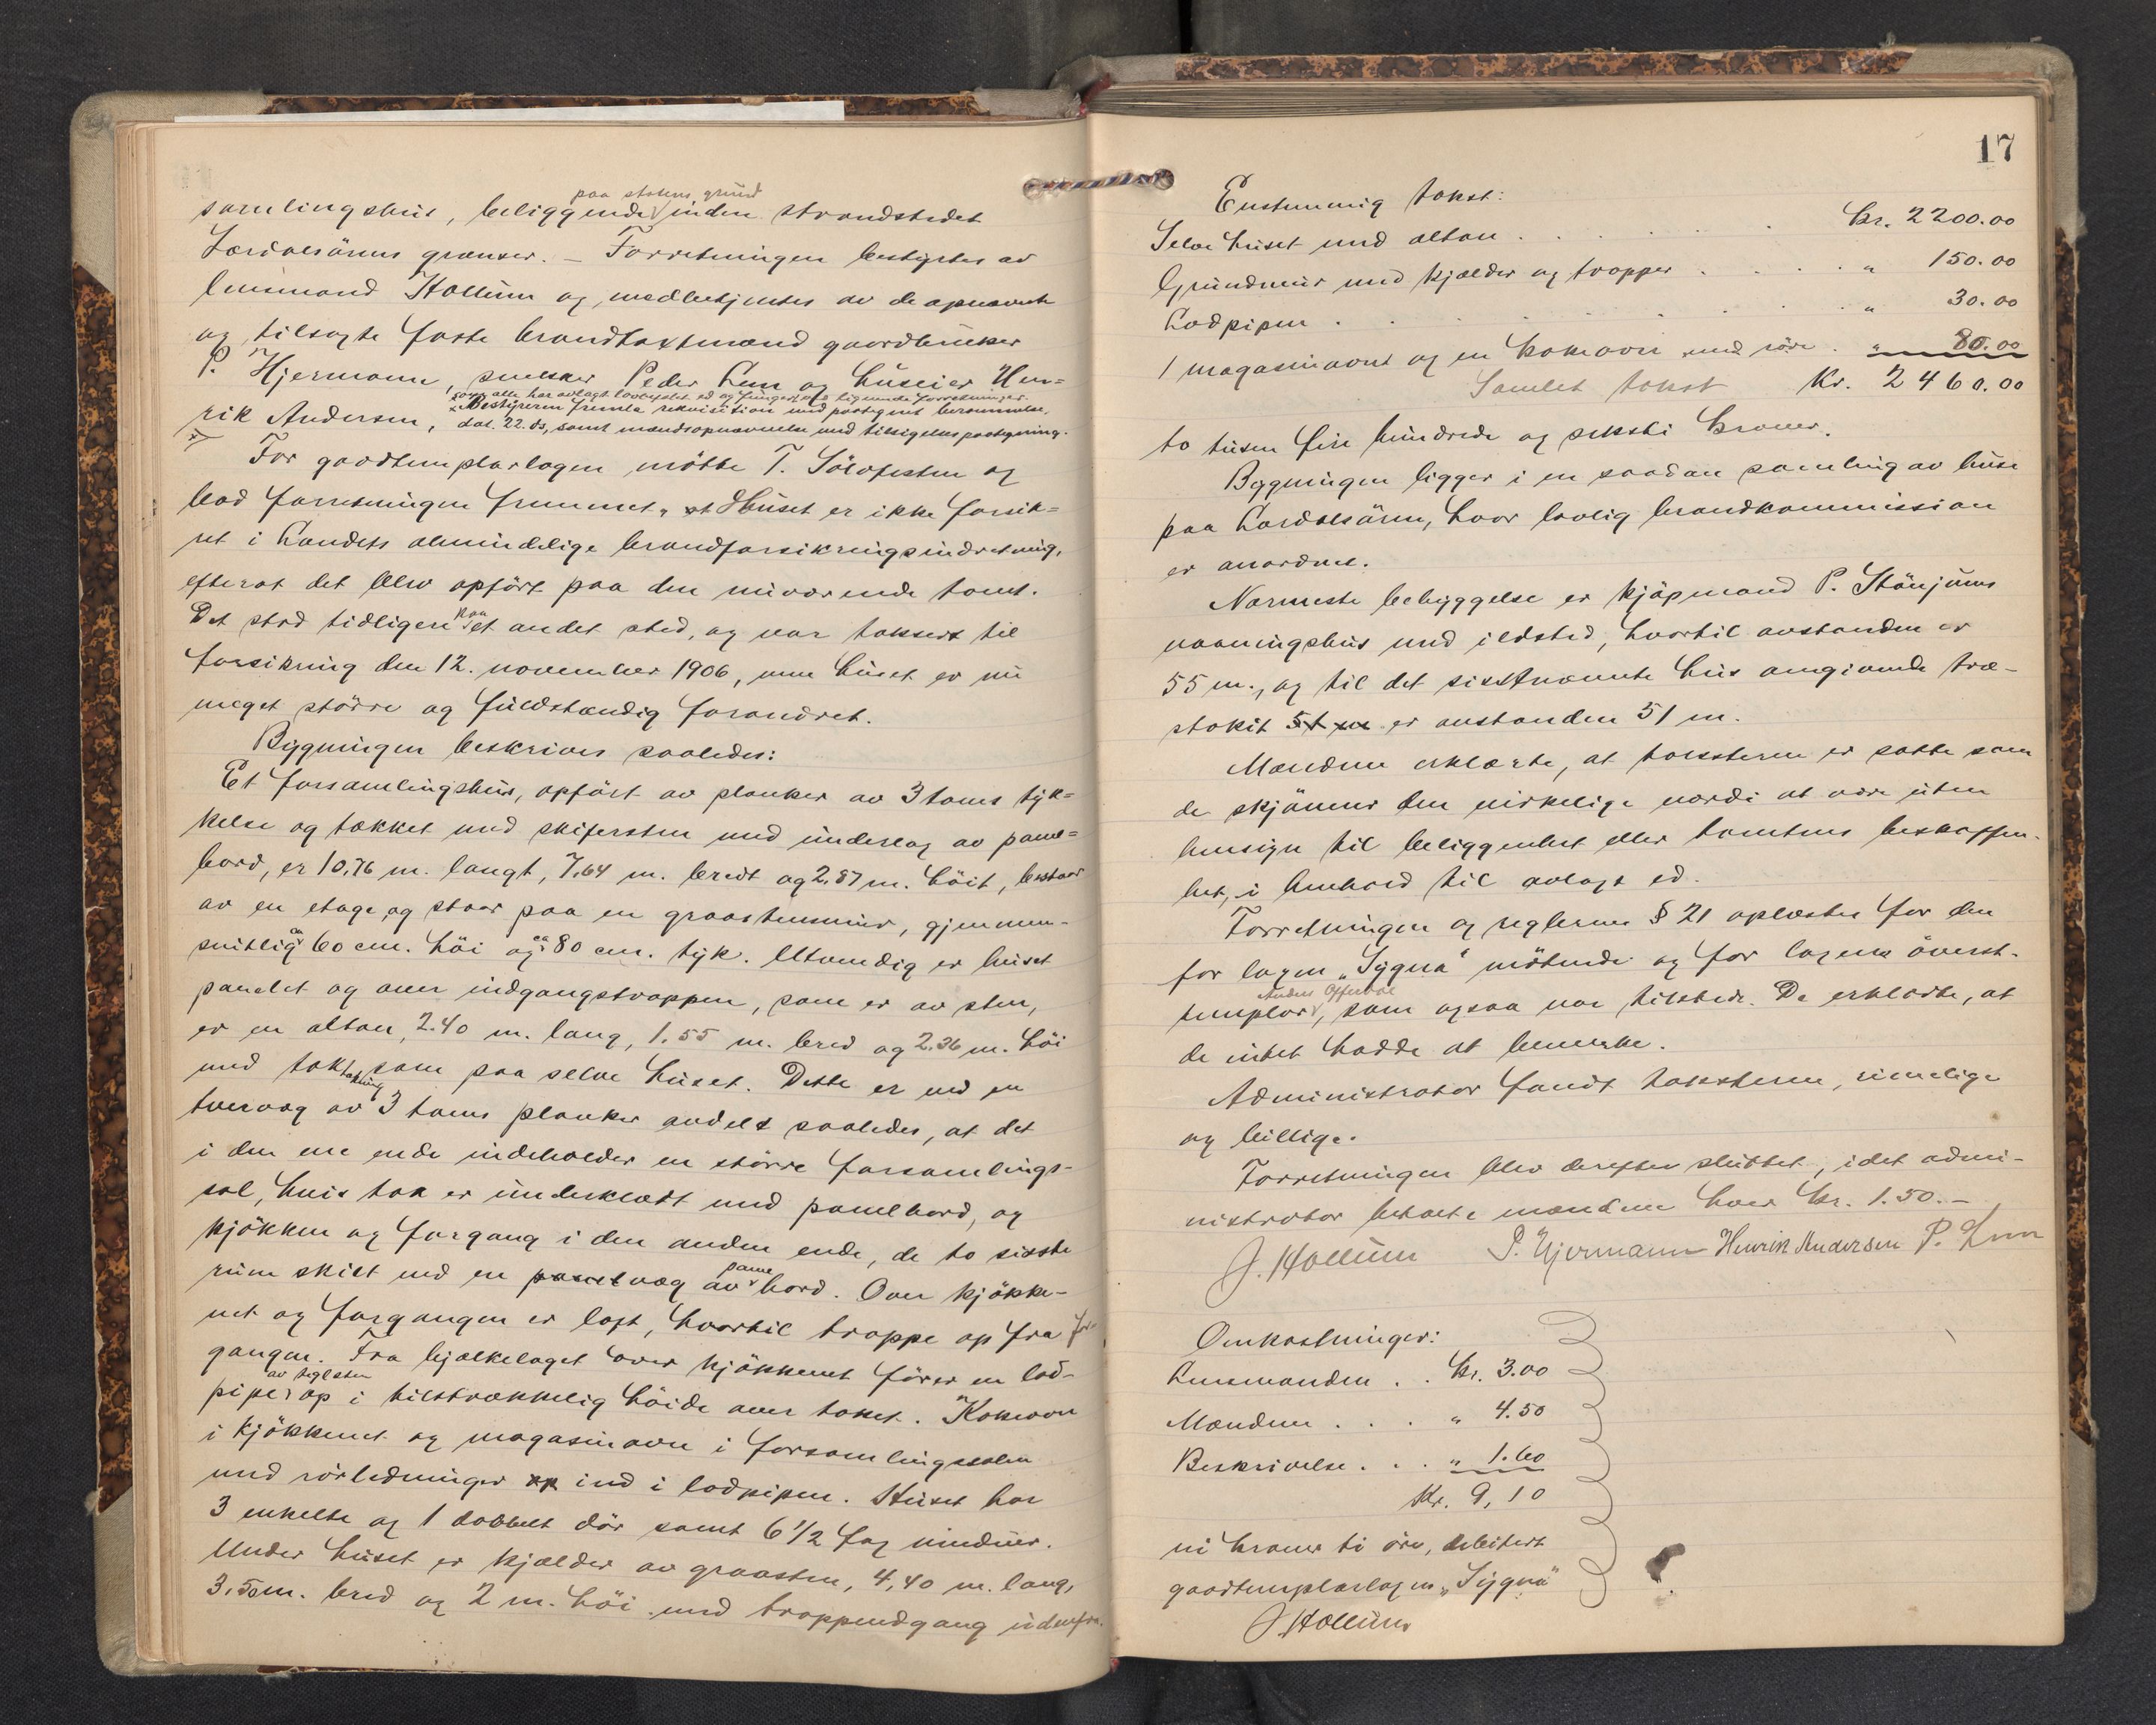 paa statens grund
samlingshus, beliggende inden strandstedet
Lærdalsörens grænser. – Forretningen bestyrtes av
lensmand Hollum og medbetjentes av de opnævnte
og tilsagte faste brandtaxtmænd gaardbruker
P. Hjermann, snekker Peder Lem og huseier Hen=
som alle har avlagt lovbefalet ed og fungert ved lignende forretninger.
× Bestyreren fremla rekvisition med paategnet berammelse,
rik Andersen, dat. 22. ds, samt mandsopnævnelse med tilsigelsespaategning.
For goodtemplarlogen mötte T. Sölvfesten og
bad forretningen fremmet, at Huset er ikke forsik=
ret i Landets almindelige brandforsikringsindretning,
efterat det blev opfört paa den nuværende tomt.
Det stod tidligere paa et andet sted, og var taksert til
forsikring den 12. november 1906, men huset er nu
meget större og fuldstændig forandret.
Bygningen beskrives saaledes:
Et forsamlingshus, opfört av planker av 3 toms tyk=
kelse og tækket med skifersten med underlag av panel=
bord, er 10,76 m. langt, 7,64 m. bredt og 2,87 m. höit, bestaar
av en etage, og staar paa en graastensmur, gjennem-
snitlig ca 60 cm. höi og ca 80 cm. tyk. Utvendig er huset
panelet og over indgangstrappen, som er av sten,
er en altan, 2.40 m. lang, 1.55 m. bred og 2.36 m. höi
med taktækning som paa selve huset. Dette er ved en
tvervæg av 3 toms planker avdelt saaledes, at det
i den ene ende indeholder en större forsamlings-
sal, hvis tak er underklædt med panelbord, og
kjökken og forgang i den anden ende, de to sidste
rum skilt ved en panelvæg av panelbord. Over kjökke-
net og forgangen er loft, hvortil trappe op fra for-
gangen. Fra bjælkelaget over kjökkenet förer en lod-
av teglsten
pipe op i tilstrækkelig höide over taket. Kokeovn
i kjökkenet og magasinovn i forsamlingssalen
med rörledninger op ind i lodpipen. Huset har
3 enkelte og 1 dobbelt dör samt 6 1/2 fag vinduer.
Under huset er kjælder av graasten, 4,40 m. lang,
3.50 m. bred og 2 m. höi med trappenedgang udenfra.
17
Enstemmig takst:
Selve huset med altan . . . . . . Kr. 2200.00
Grundmur med kjælder og trapper . . . . „ 150.00
Lodpipen . . . . . . . . . „ 30.00
1 magasinovn og en kokeovn med rör . „ 80.00
Samlet takst Kr. 2460.00
to tusen fire hundrede og seksti kroner.
Bygningen ligger i en saadan samling av huse
paa Lærdalsören, hvor lovlig brandkommission
er anordnet.
Nærmeste bebyggelse er kjöpmand P. Stönjums
vaaningshus med ildsted, hvortil avstanden er
55 m., og til det sisstnævnte hus omgivende træ-
stakit 51 m er avstanden 51 m.
Mændene erklærte, at taksterne er satte som
de skjönner den virkelige værdi at være uten
hensyn til beliggenhet eller tomtens beskaffen-
het, i henhold til avlagt ed.
Forretningen og reglernes § 21 oplæstes for den
for logen „Sygna“ mötende og for logens överst-
Anders Offerdal
templar, som ogsaa var tilstede. De erklærte, at
de intet hadde at bemerke.
Administrator fandt taksterne, rimelige
og billige.
Forretningen blev derefter sluttet, idet admi-
nistrator betalte mændene hver Kr. 1.50.–
J. Hollum P. Hjermann Henrik Andersen P. Lem
Omkostninger:
Lensmanden . . Kr. 3.00
Mændene . . . „ 4.50
Beskrivelse . . . „ 1.60
Kr. 9,10
ni kroner ti öre, debitert
goodtemplarlogen „Sygna“
J. Hollum